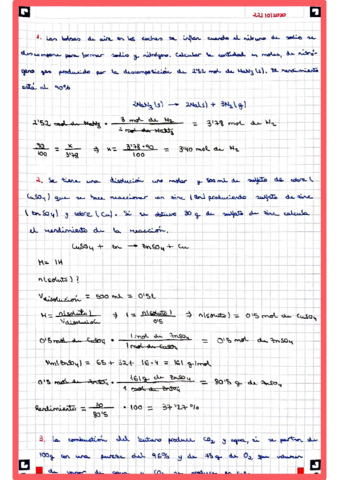 22/10/2020
1. Las bolsas de aire en los coches se inflan cuando el nitruro de sodio se
descompone para formar sodio y nitrógeno. Calcular la cantidad en moles, de nitró-
geno gas producido por la descomposición de 2'52 mol de NaN₃(s). El rendimiento
está al 90%
2NaN₃(s) → 2Na(s) + 3N₂(g)
2'52 mol de NaN₃ · 3 mol de N₂ / 2 mol de NaN₃ = 3'78 mol de N₂
90/100 = x/3'78 ⇒ x = 3'78·90/100 = 3'40 mol de N₂
2. Se tiene una disolución uno molar y 500 ml de sulfato de cobre (
CuSO₄) que se hace reaccionar con zinc (Zn) produciendo sulfato de zinc
(ZnSO₄) y cobre (Cu). Si se obtuvo 30 g de sulfato de zinc calcula
el rendimiento de la reacción.
CuSO₄ + Zn → ZnSO₄ + Cu
M = 1M
n(soluto)?
Vdisolución = 500 ml = 0'5 l
M = n(soluto)/Vdisolución ⇒ 1 = n(soluto)/0'5 ⇒ n(soluto) = 0'5 mol de CuSO₄
0'5 mol de CuSO₄ · 1 mol de ZnSO₄ / 1 mol de CuSO₄ = 0'5 mol de ZnSO₄
Mm(ZnSO₄) = 65 + 32 + 16·4 = 161 g/mol
0'5 mol de ZnSO₄ · 161 g de ZnSO₄ / 1 mol de ZnSO₄ = 80'5 g de ZnSO₄
Rendimiento = 30/80'5 · 100 = 37'27 %
3. La combustión del butano produce CO₂ y agua, si se parten de
100g con una pureza del 96% y de 75 g de O₂ que volumen
de vapor de agua y CO₂ se produce